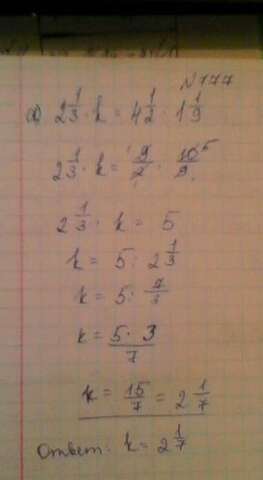 №177
а) 2 1/3 · k = 4 1/2 · 1 1/9
2 1/3 · k = 9/2 · 10/9 5
2 1/3 · k = 5
k = 5 : 2 1/3
k = 5 : 7/3
k = 5 · 3/7
k = 15/7 = 2 1/7
Ответ: k = 2 1/7